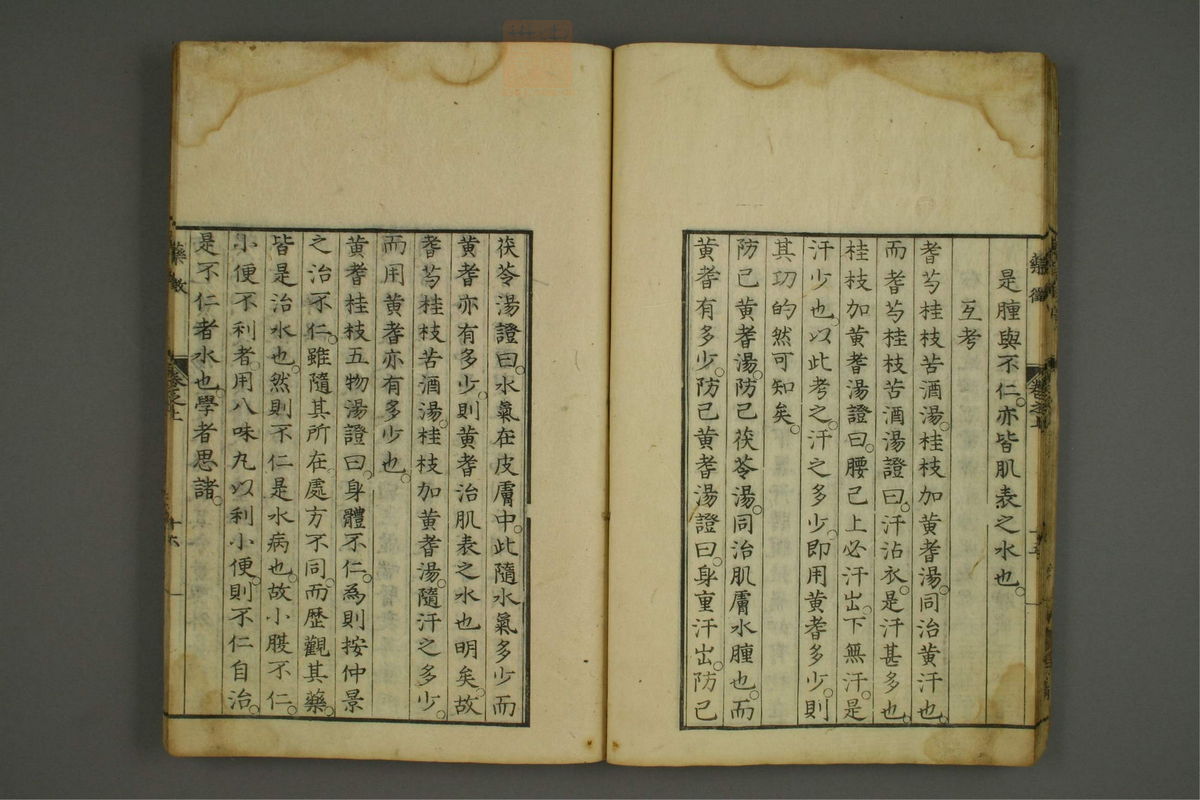 是腫與不仁。亦皆肌表之水也。
互考
耆芍桂枝苦酒湯。桂枝加黃耆湯。同治黃汗也。
而耆芍桂枝苦酒湯證曰。汗沾衣。是汗甚多也。
桂枝加黃耆湯證曰。腰已上必汗出。下無汗。是
汗少也。以此考之。汗之多少。即用黃耆多少。則
其功的然可知矣。
防已黃耆湯。防已茯苓湯。同治肌膚水腫也。而
黃耆有多少。防已黃耆湯證曰。身重汗出。防已
茯苓湯證曰。水氣在皮膚中。此隨水氣多少而
黃耆亦有多少。則黃耆治肌表之水也明矣。故
耆芍桂枝苦酒湯。桂枝加黃耆湯。隨汗之多少。
而用黃耆亦有多少也。
黃耆桂枝五物湯證曰。身體不仁。為則按仲景
之治不仁。雖隨其所在。處方不同。而歷觀其藥。
皆是治水也。然則不仁是水病也。故小腹不仁。
小便不利者。用八味丸以利小便。則不仁自治。
是不仁者水也。學者思諸。
藥徵
卷之上